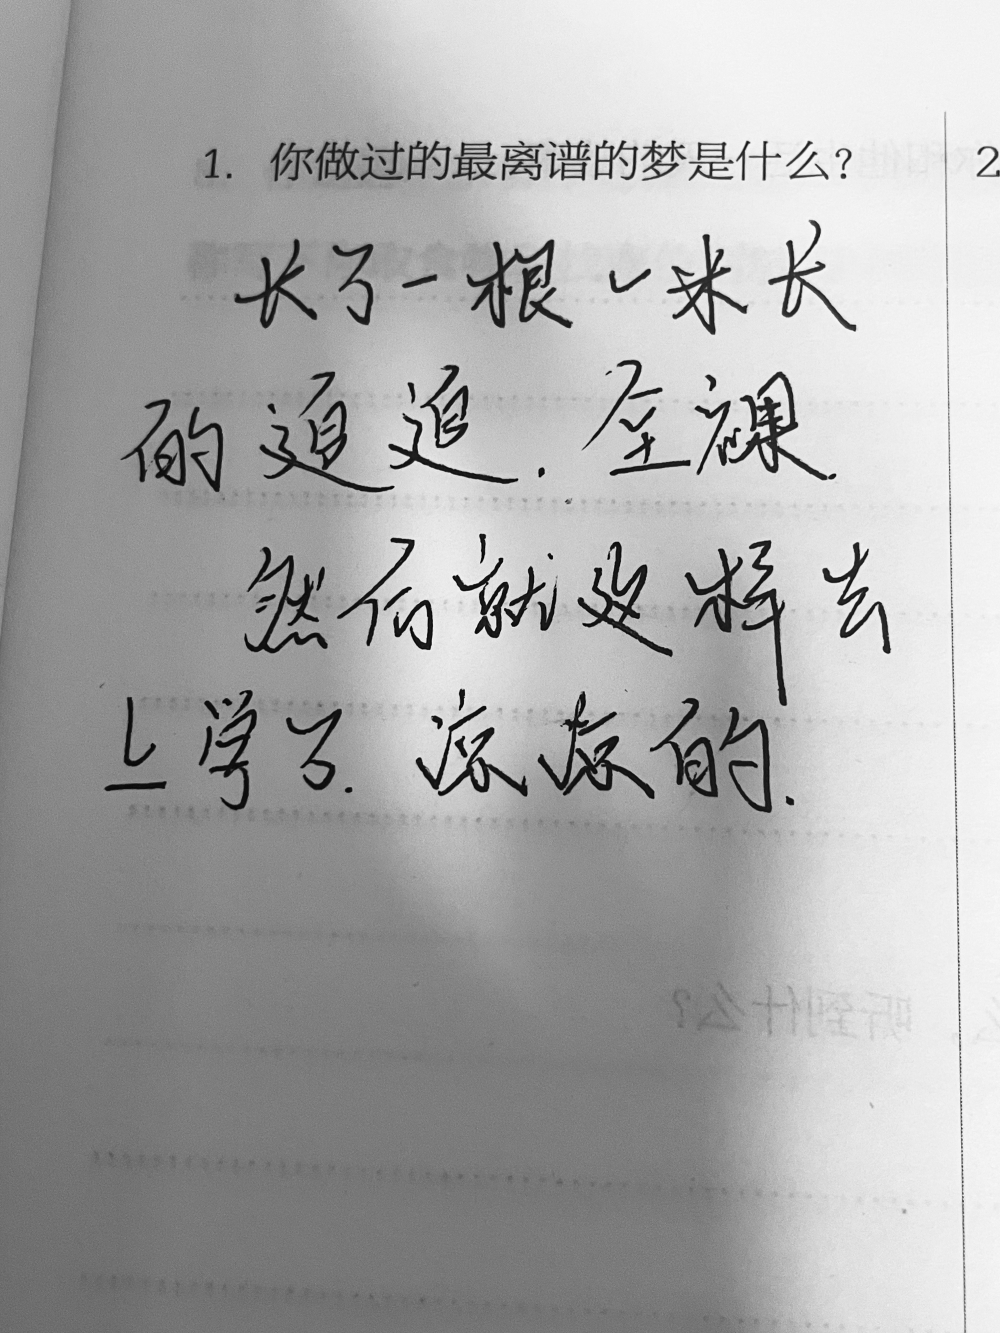 1. 你做过的最离谱的梦是什么? 2
长了一根一米长
的追追.全裸.
然后就这样去
上学了.凉凉的.
听到什么?